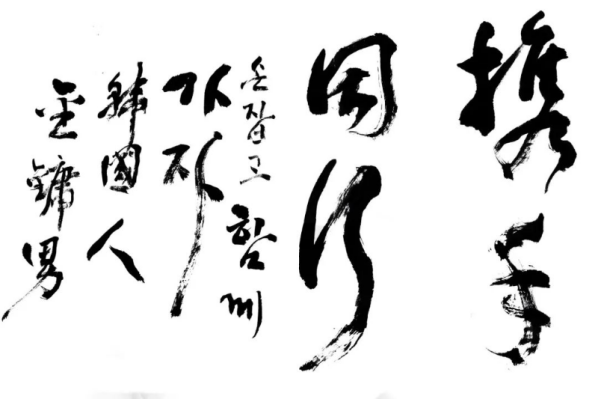 携手
同行
손잡고 함께
가자
韓國人
金鏞男